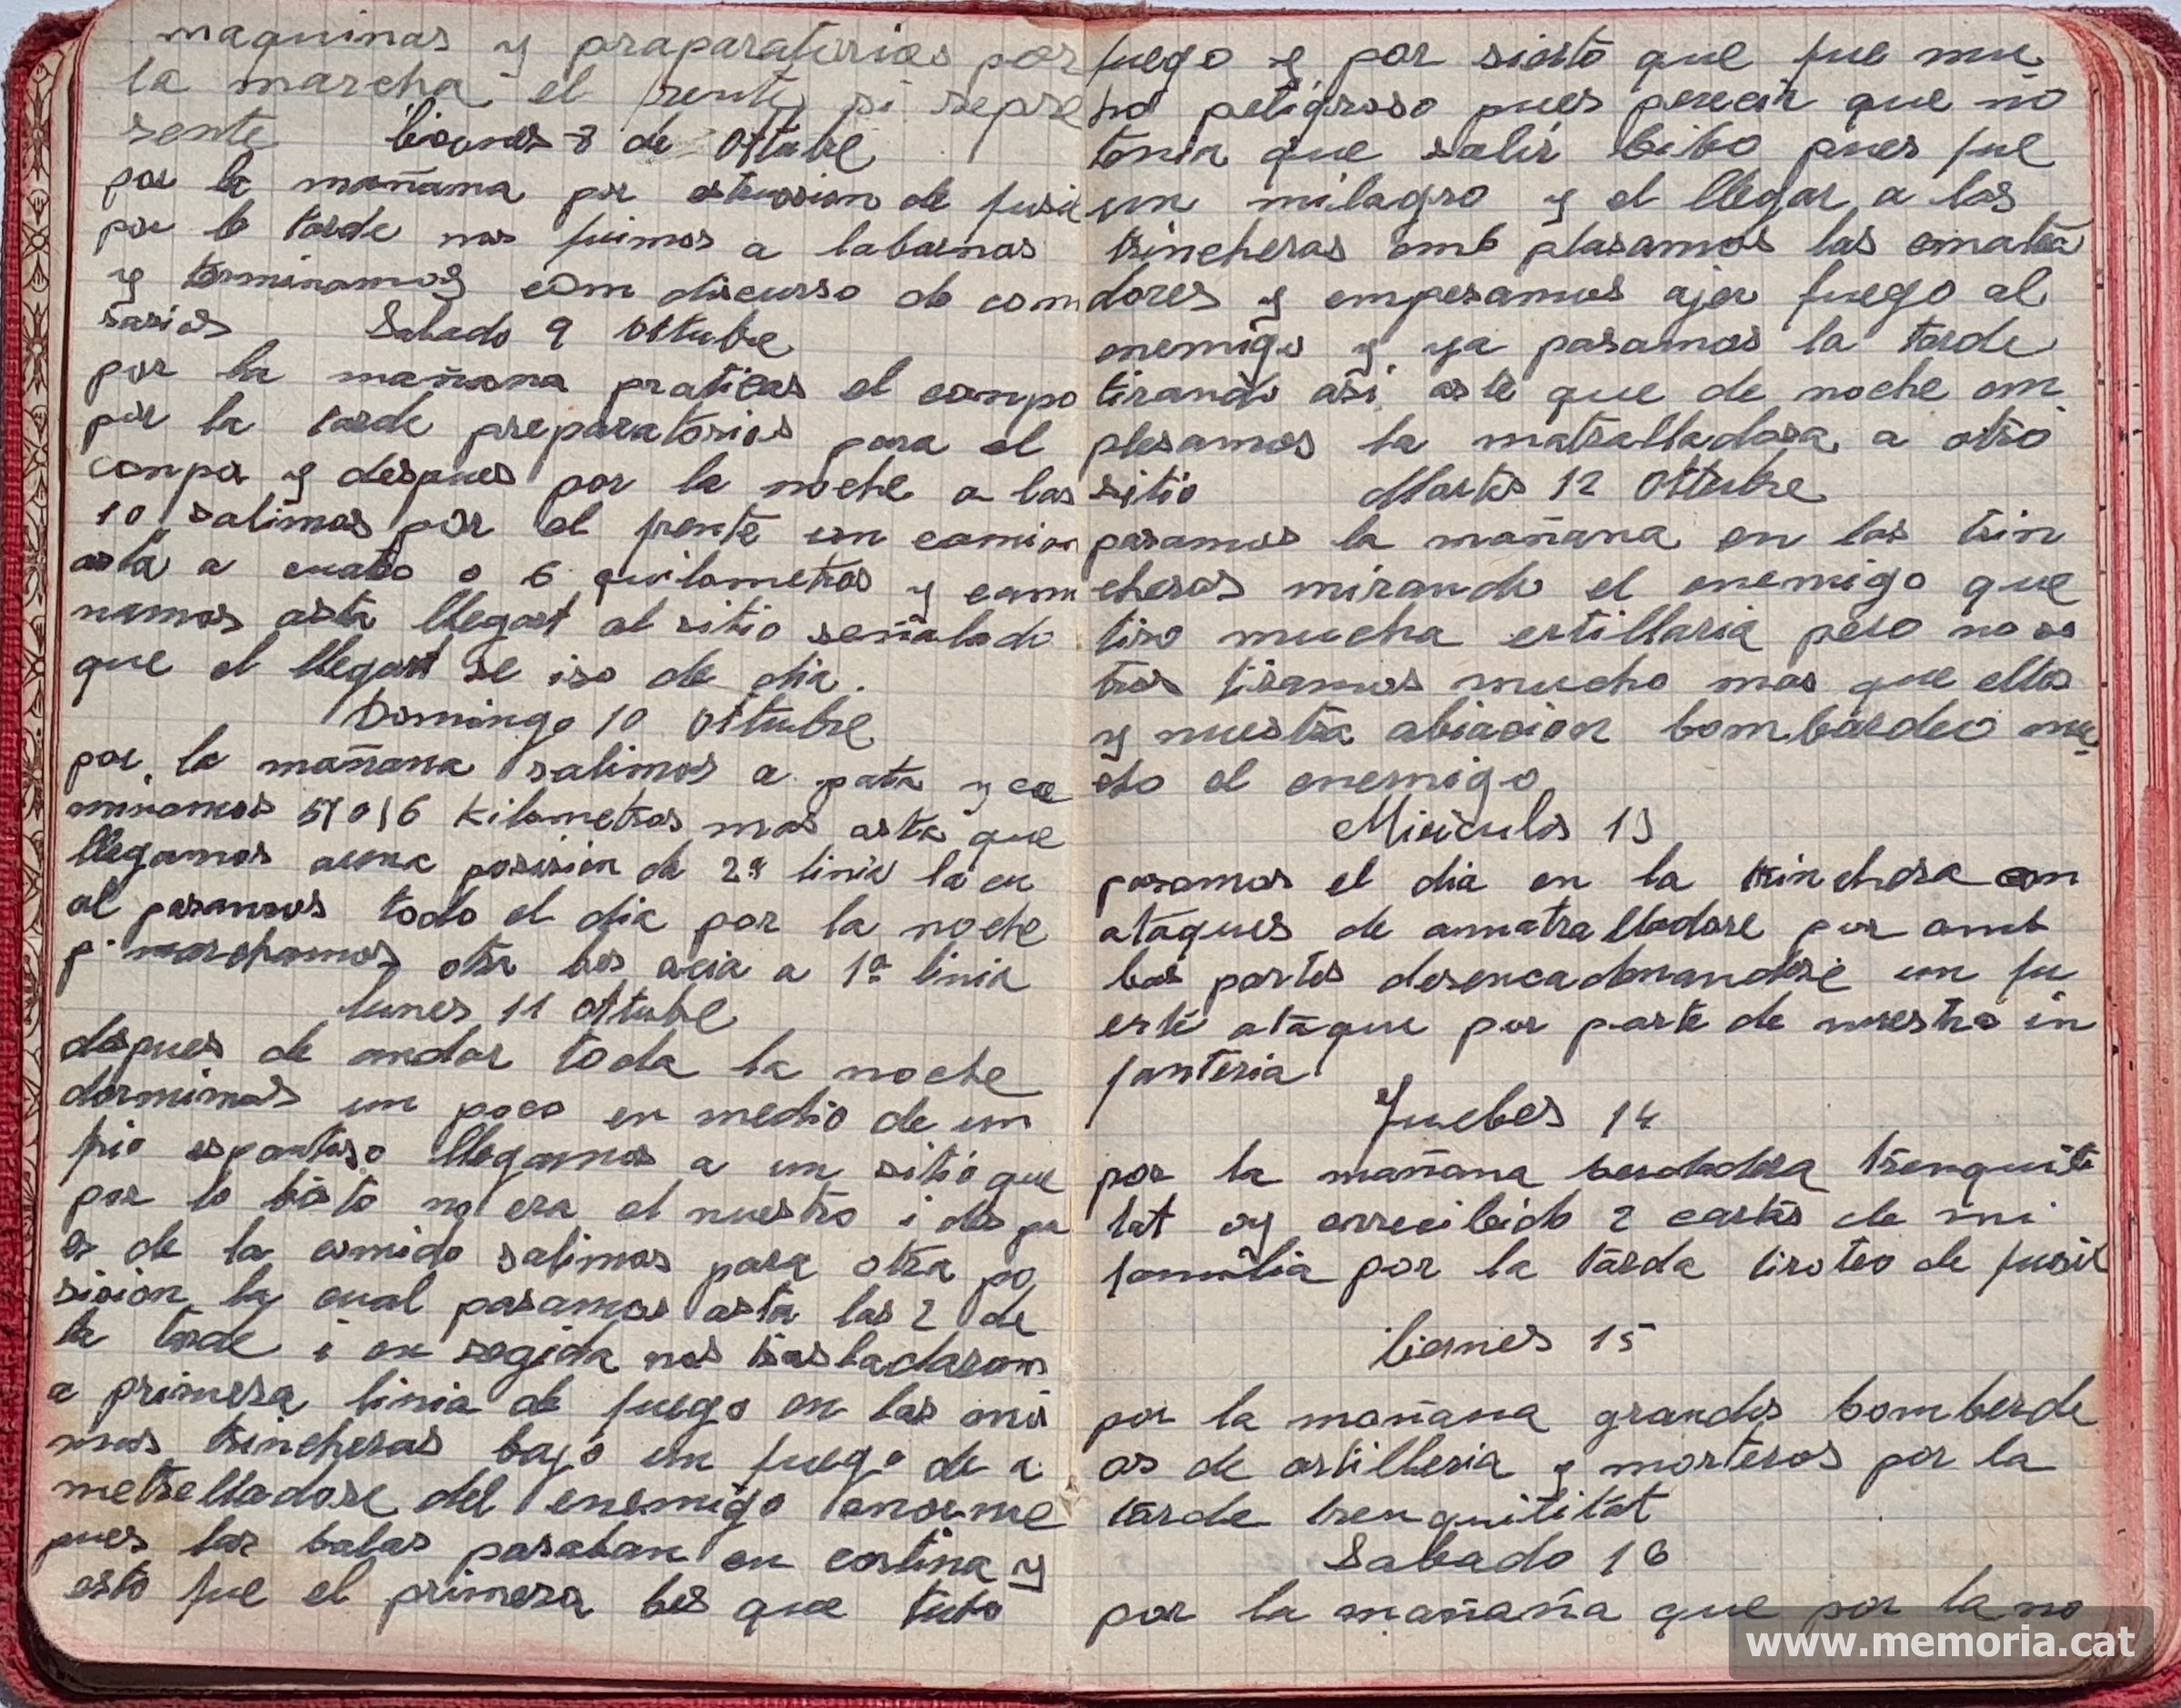 maquinas y praparatorios por
la marcha el frente si sepre
sente biernes 8 de Ottubre
por la mañana por estrussion de fusil
por la tarde nos fuimos a tabarnas
y terminamos com discurso de comi
sarios Sabado 9 Ottubre
por la mañana praticas el campo
por la tarde preparatorios para el
campo y despues por la noche a las
10 salimos por el frente en camion
asta a cuatro o 6 quilometros y cami
namos asta llegart al sitio señalado
que el llegart se iso de dia.
Domingo 10 Ottubre
por la mañana salimos a pata y ca
minamos 5 o 6 kilometros mas asta que
llegamos auna posision de 2ª linia la cu
al pasamos todo el dia por la noche
marchamos otra bes acia a 1ª linia
lunes 11 Ottubre
despues de andar toda la noche
dormimos un poco en medio de un
frio espantoso llegamos a un sitio que
por lo bisto no era el nuestro i des pu
es de la comida salimos para otra po
sision la cual pasamos asta las 2 de
la tarde i en segida nos trasladaron
a primera linia de fuego en las mis
mas trincheras bajo un fuego de a
metralladore del enemigo enorme
pues las balas pasaban en cortina y
esto fue el primera bes que tubo
fuego y por sierto que fue mu
ho peligroso pues perecia que no
tenia que salir bibo pues fue
un milagro y el llegar a las
trincheras emb plasamos las ematra
dores y empesamos ajer fuego al
enemigo y ya pasamos la tarde
tirando asi aste que de noche em
plesamos la matralladora a otro
sitio Martes 12 Ottubre
pasamos la mañana en las trin
cheras mirando el enemigo que
tiro mucha ertillaria pero nosa
tros tiramos mucho mas que ellos
y nuestra abiacion bombardeo mu
cho el enemigo
Miericulos 13
pasamos el dia en la trinchera con
ataques de amatralladore por amb
bas partes desencadenandose un fu
erte ataque por parte de nuestra in
fanteria
Juebes 14
por la mañana berdadera trenquili
tat oy errecibido 2 cartas de mi
familia por la tarda tiroteo de fusil
biernes 15
por la mañana grandes bomberde
os de artilleria y morteros por la
tarde trenquilitat
Sabado 16
por la mañaña que por la no
www.memoria.cat